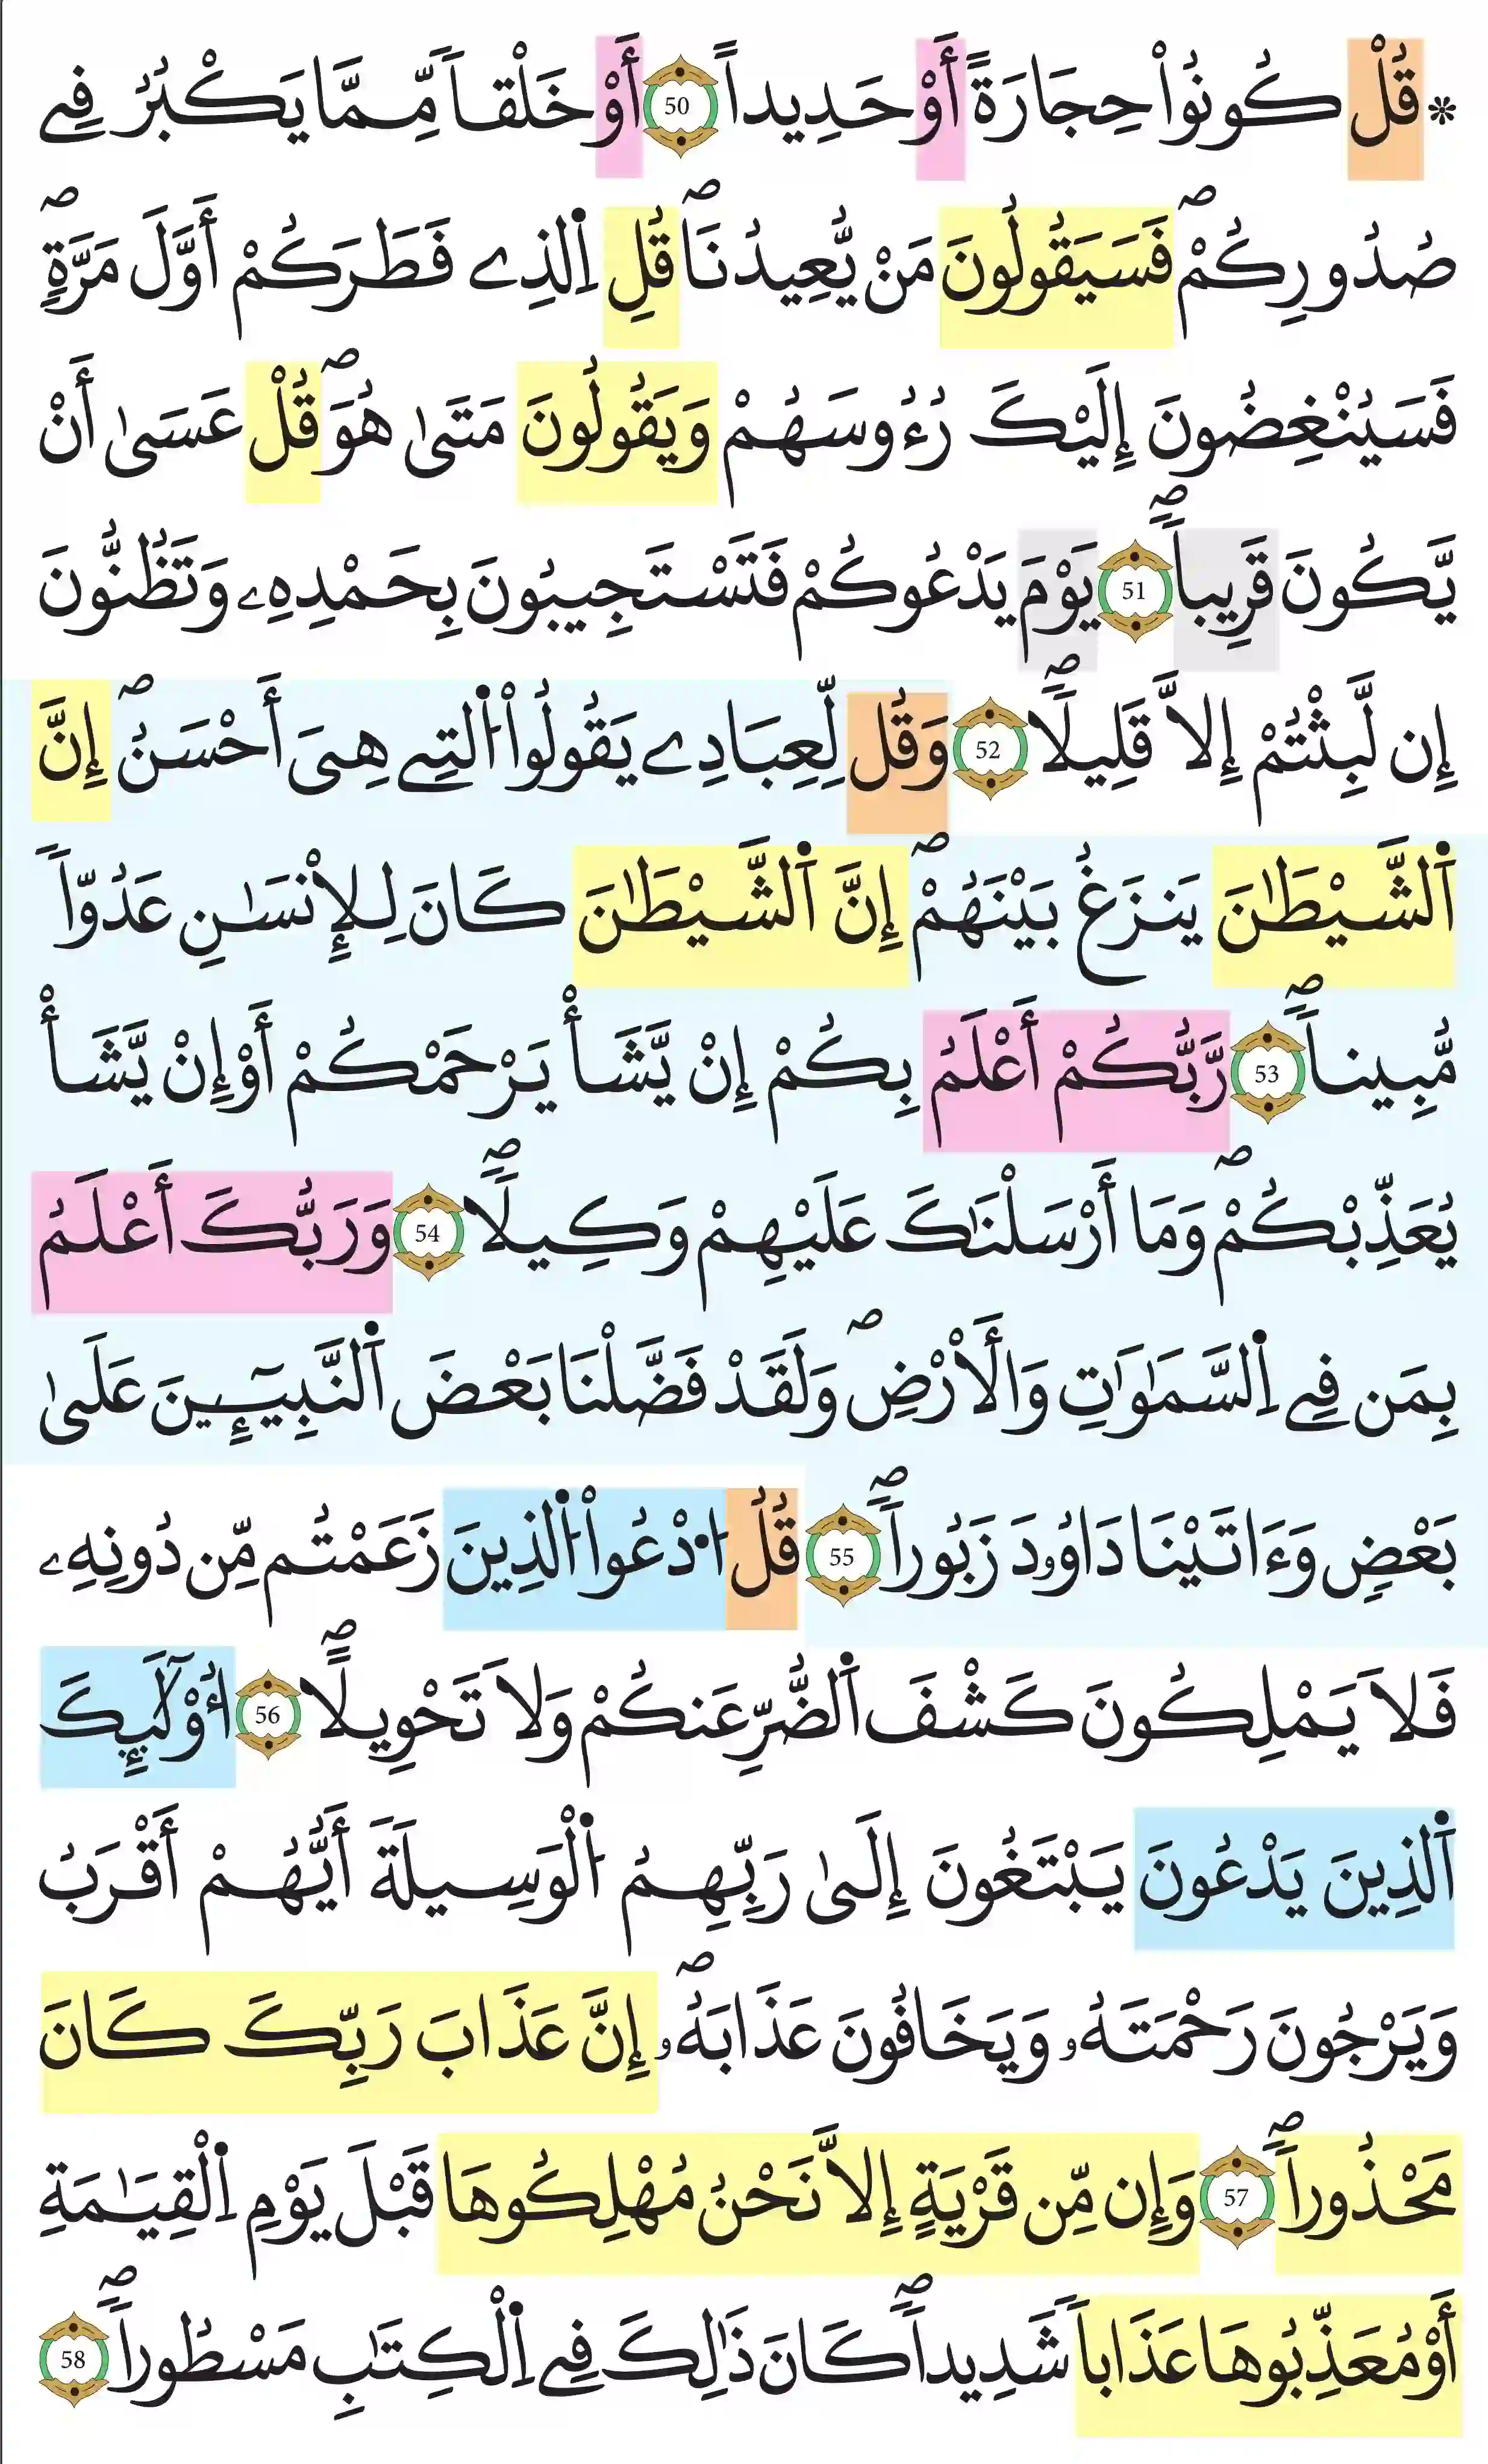 * قُلْ كُونُواْ حِجَارَةً أَوْ حَدِيداً 50 أَوْ خَلْقاً مِّمَّا يَكْبُرُ فِے
صُدُورِكُمْۖ فَسَيَقُولُونَ مَنْ يُّعِيدُنَاۖ قُلِ اِ۬لذِے فَطَرَكُمْ أَوَّلَ مَرَّةٍۖ
فَسَيُنْغِضُونَ إِلَيْكَ رُءُوسَهُمْ وَيَقُولُونَ مَتَىٰ هُوَۖ قُلْ عَسَىٰ أَنْ
يَّكُونَ قَرِيباًۖ 51 يَوْمَ يَدْعُوكُمْ فَتَسْتَجِيبُونَ بِحَمْدِهِۦ وَتَظُنُّونَ
إِن لَّبِثْتُمْ إِلاَّ قَلِيلاًۖ 52 وَقُل لِّعِبَادِے يَقُولُواْ اُ۬لتِے هِيَ أَحْسَنُۖ إِنَّ
اَ۬لشَّيْطَٰنَ يَنزَغُ بَيْنَهُمْۖ إِنَّ اَ۬لشَّيْطَٰنَ كَانَ لِلإِنْسَٰنِ عَدُوّاً
مُّبِيناًۖ 53 رَّبُّكُمْ أَعْلَمُ بِكُمْ إِنْ يَّشَأْ يَرْحَمْكُمْ أَوْ إِنْ يَّشَأْ
يُعَذِّبْكُمْۖ وَمَا أَرْسَلْنَٰكَ عَلَيْهِمْ وَكِيلاًۖ 54 وَرَبُّكَ أَعْلَمُ
بِمَن فِے اِ۬لسَّمَٰوَٰتِ وَالَارْضِۖ وَلَقَدْ فَضَّلْنَا بَعْضَ اَ۬لنَّبِيٓـِٕينَ عَلَىٰ
بَعْضٍ وَءَاتَيْنَا دَاوُۥدَ زَبُوراًۖ 55 قُلُ اُ۟دْعُواْ اُ۬لذِينَ زَعَمْتُم مِّن دُونِهِۦ
فَلاَ يَمْلِكُونَ كَشْفَ اَ۬لضُّرِّ عَنكُمْ وَلاَ تَحْوِيلاًۖ 56 أُوْلَٰٓئِكَ
اَ۬لذِينَ يَدْعُونَ يَبْتَغُونَ إِلَىٰ رَبِّهِمُ اُ۬لْوَسِيلَةَ أَيُّهُمْ أَقْرَبُ
وَيَرْجُونَ رَحْمَتَهُۥ وَيَخَافُونَ عَذَابَهُۥۖ إِنَّ عَذَابَ رَبِّكَ كَانَ
مَحْذُوراًۖ 57 وَإِن مِّن قَرْيَةٍ إِلاَّ نَحْنُ مُهْلِكُوهَا قَبْلَ يَوْمِ اِ۬لْقِيَٰمَةِ
أَوْ مُعَذِّبُوهَا عَذَاباً شَدِيداًۖ كَانَ ذَٰلِكَ فِے اِ۬لْكِتَٰبِ مَسْطُوراًۖ 58